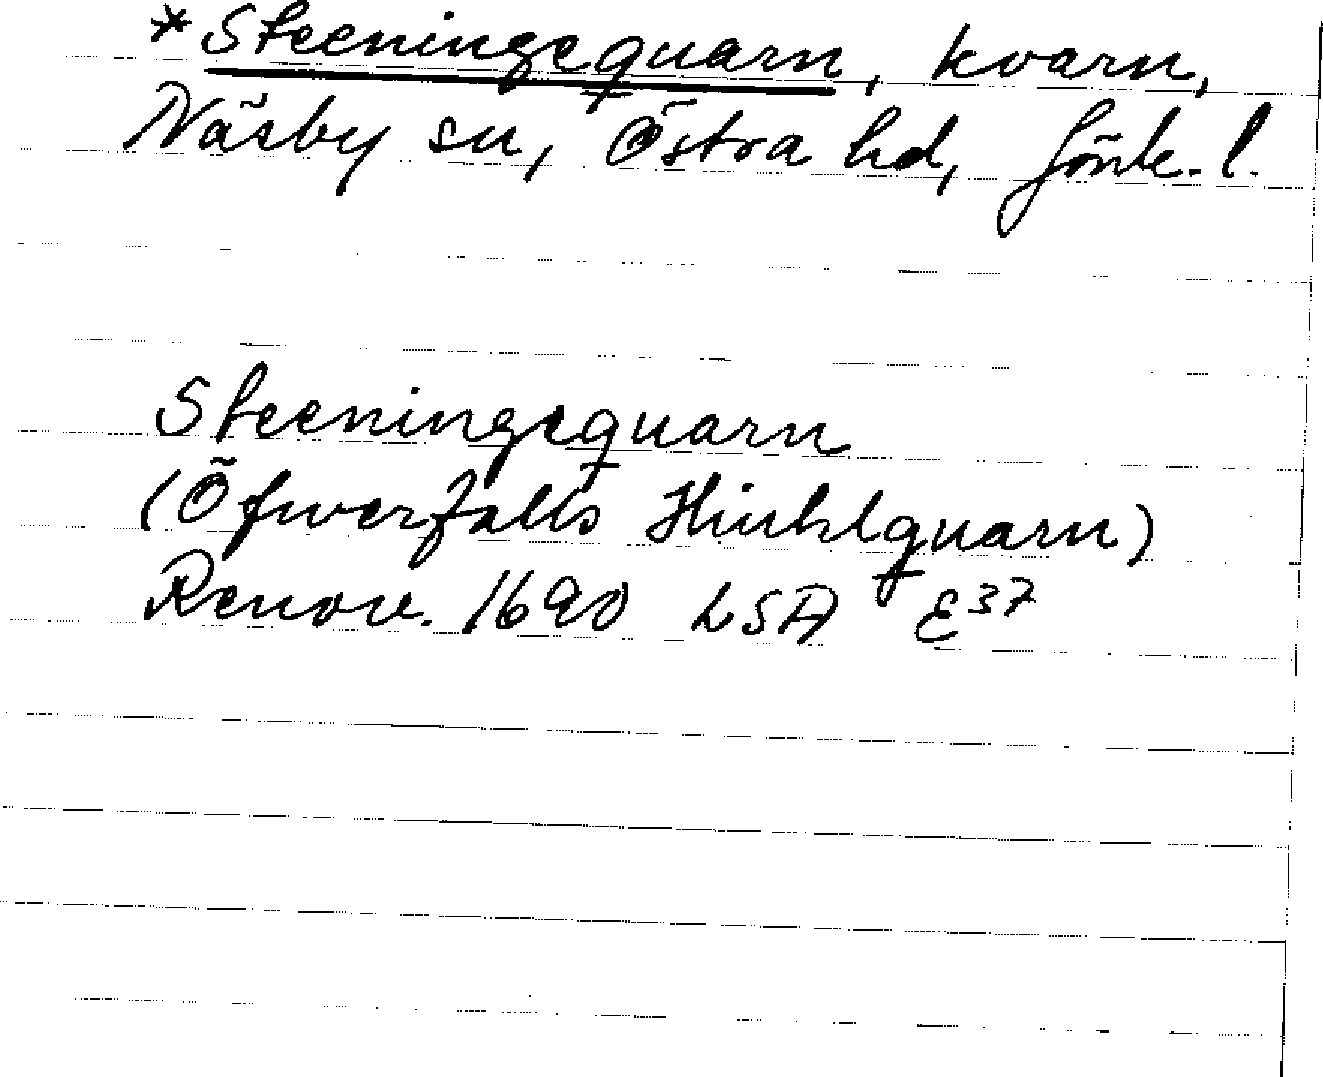 *Steeningequarn, kvarn,
Näsby sn, Östra hd, Jönk. l.
Steeningequarn
(Öfwerfalls Hiuhlquarn)
Renov. 1690 LSA E37